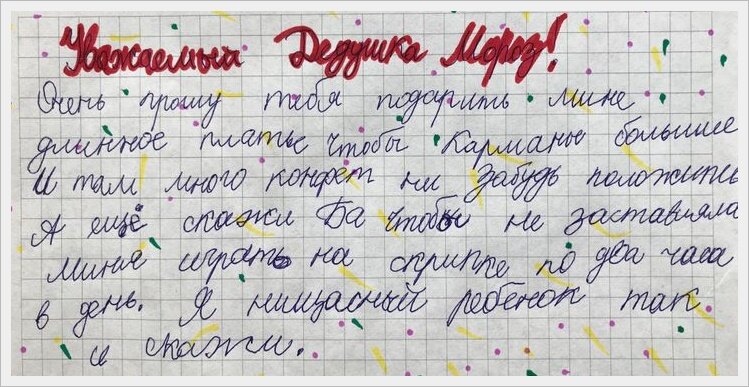 Уважаемый Дедушка Мороз!
Очень прошу тебя подарить мине
длинное платье чтобы Карманы большие
И там много конфет ни забудь положить
А ещё скажи Ба чтобы не заставляла
Минье играть на скрипке по два часа
в день. Я нищасный ребёнок так
и скажи.